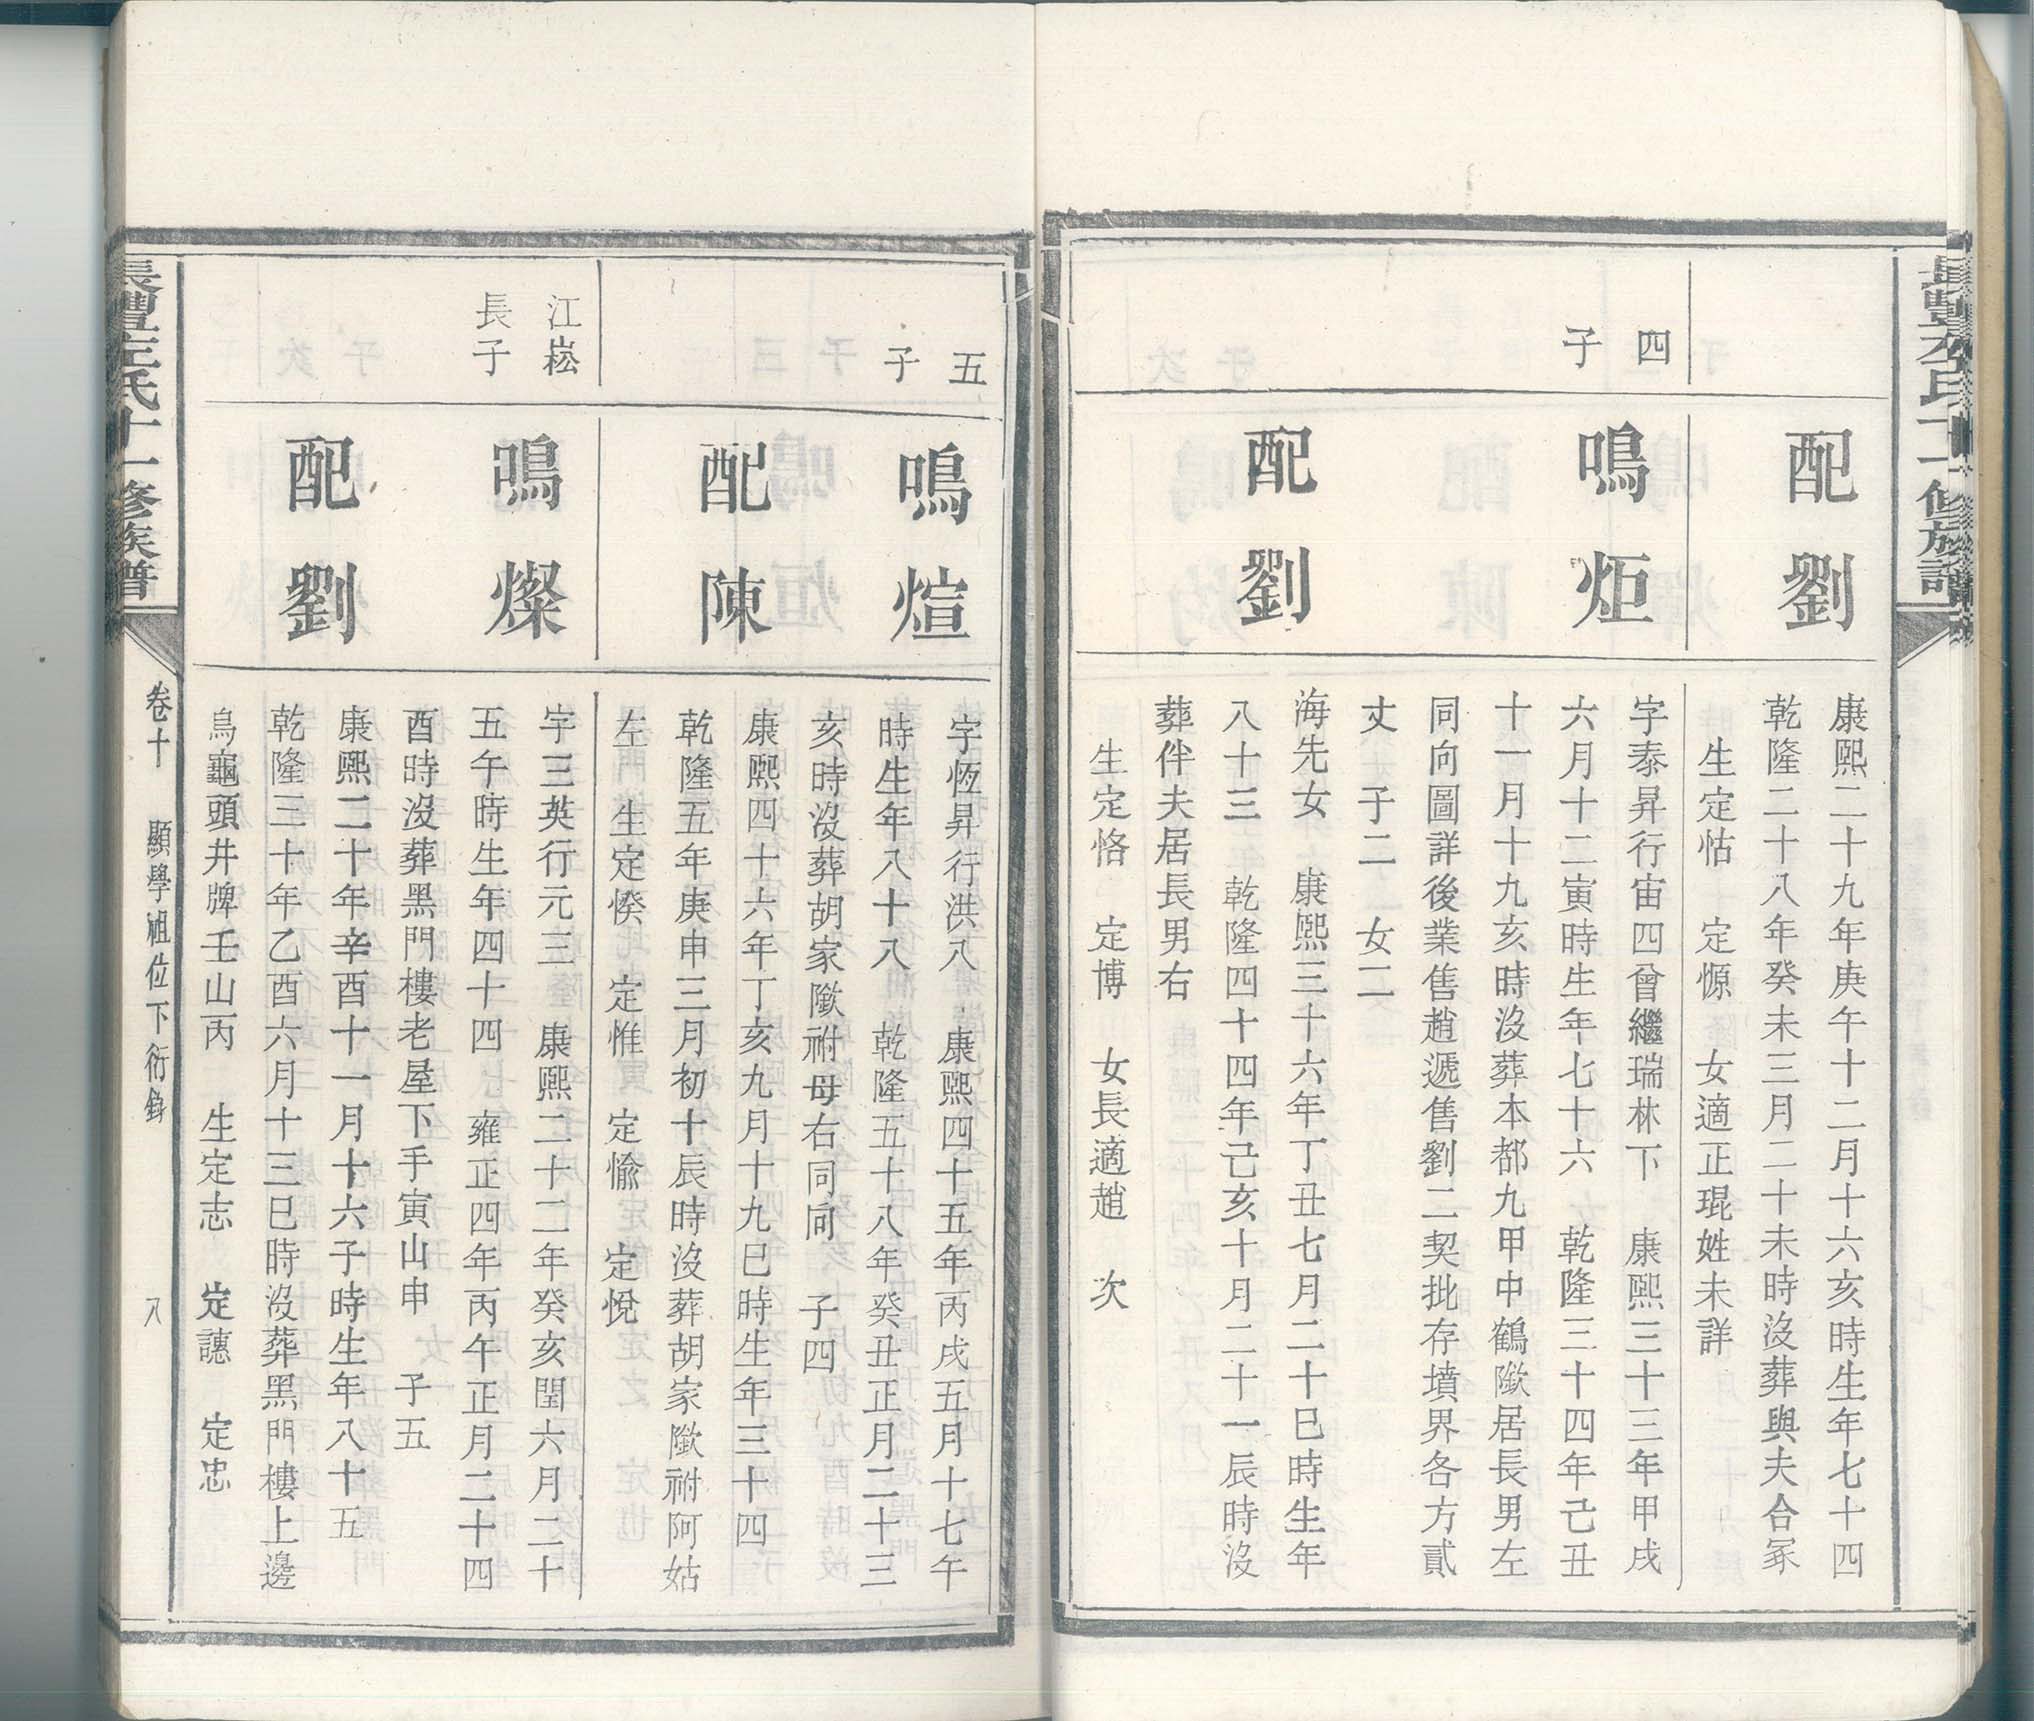 長豐左氏十一修族譜
配劉
康熙二十九年庚午十二月十六亥時生年七十四
乾隆二十八年癸未三月二十未時沒葬與夫合冢
生定怙　定愿　女適正琨姓未詳
四
子
鳴炬
字泰昇行宙四曾繼瑞林下　康熙三十三年甲戌
六月十二寅時生年七十六　乾隆三十四年己丑
十一月十九亥時沒葬本都九甲中鶴隞居長男左
同向圖詳後業售趙遞售劉二契批存墳界各方貳
丈　子二　女二
配劉
海先女　康熙三十六年丁丑七月二十巳時生年
八十三　乾隆四十四年己亥十月二十一辰時沒
葬伴夫居長男右
生定恪　定博　女長適趙　次
五
子
鳴煊
字恆昇行洪八　康熙四十五年丙戌五月十七午
時生年八十八　乾隆五十八年癸丑正月二十三
亥時沒葬胡家隞祔母右同向　子四
配陳
康熙四十六年丁亥九月十九巳時生年三十四
乾隆五年庚申三月初十辰時沒葬胡家隞祔阿姑
左　生定懓　定惟　定愉　定悅
江崧
長子
鳴燦
字三英行元三　康熙二十二年癸亥閏六月二十
五午時生年四十四　雍正四年丙午正月二十四
酉時沒葬黑門樓老屋下手寅山申　子五
配劉
康熙二十年辛酉十一月十六子時生年八十五
乾隆三十年乙酉六月十三巳時沒葬黑門樓上邊
烏龜頭井牌壬山丙　生定志　定譓　定忠
長豐左氏十一修族譜
卷十　顯學祖位下衍錄　八